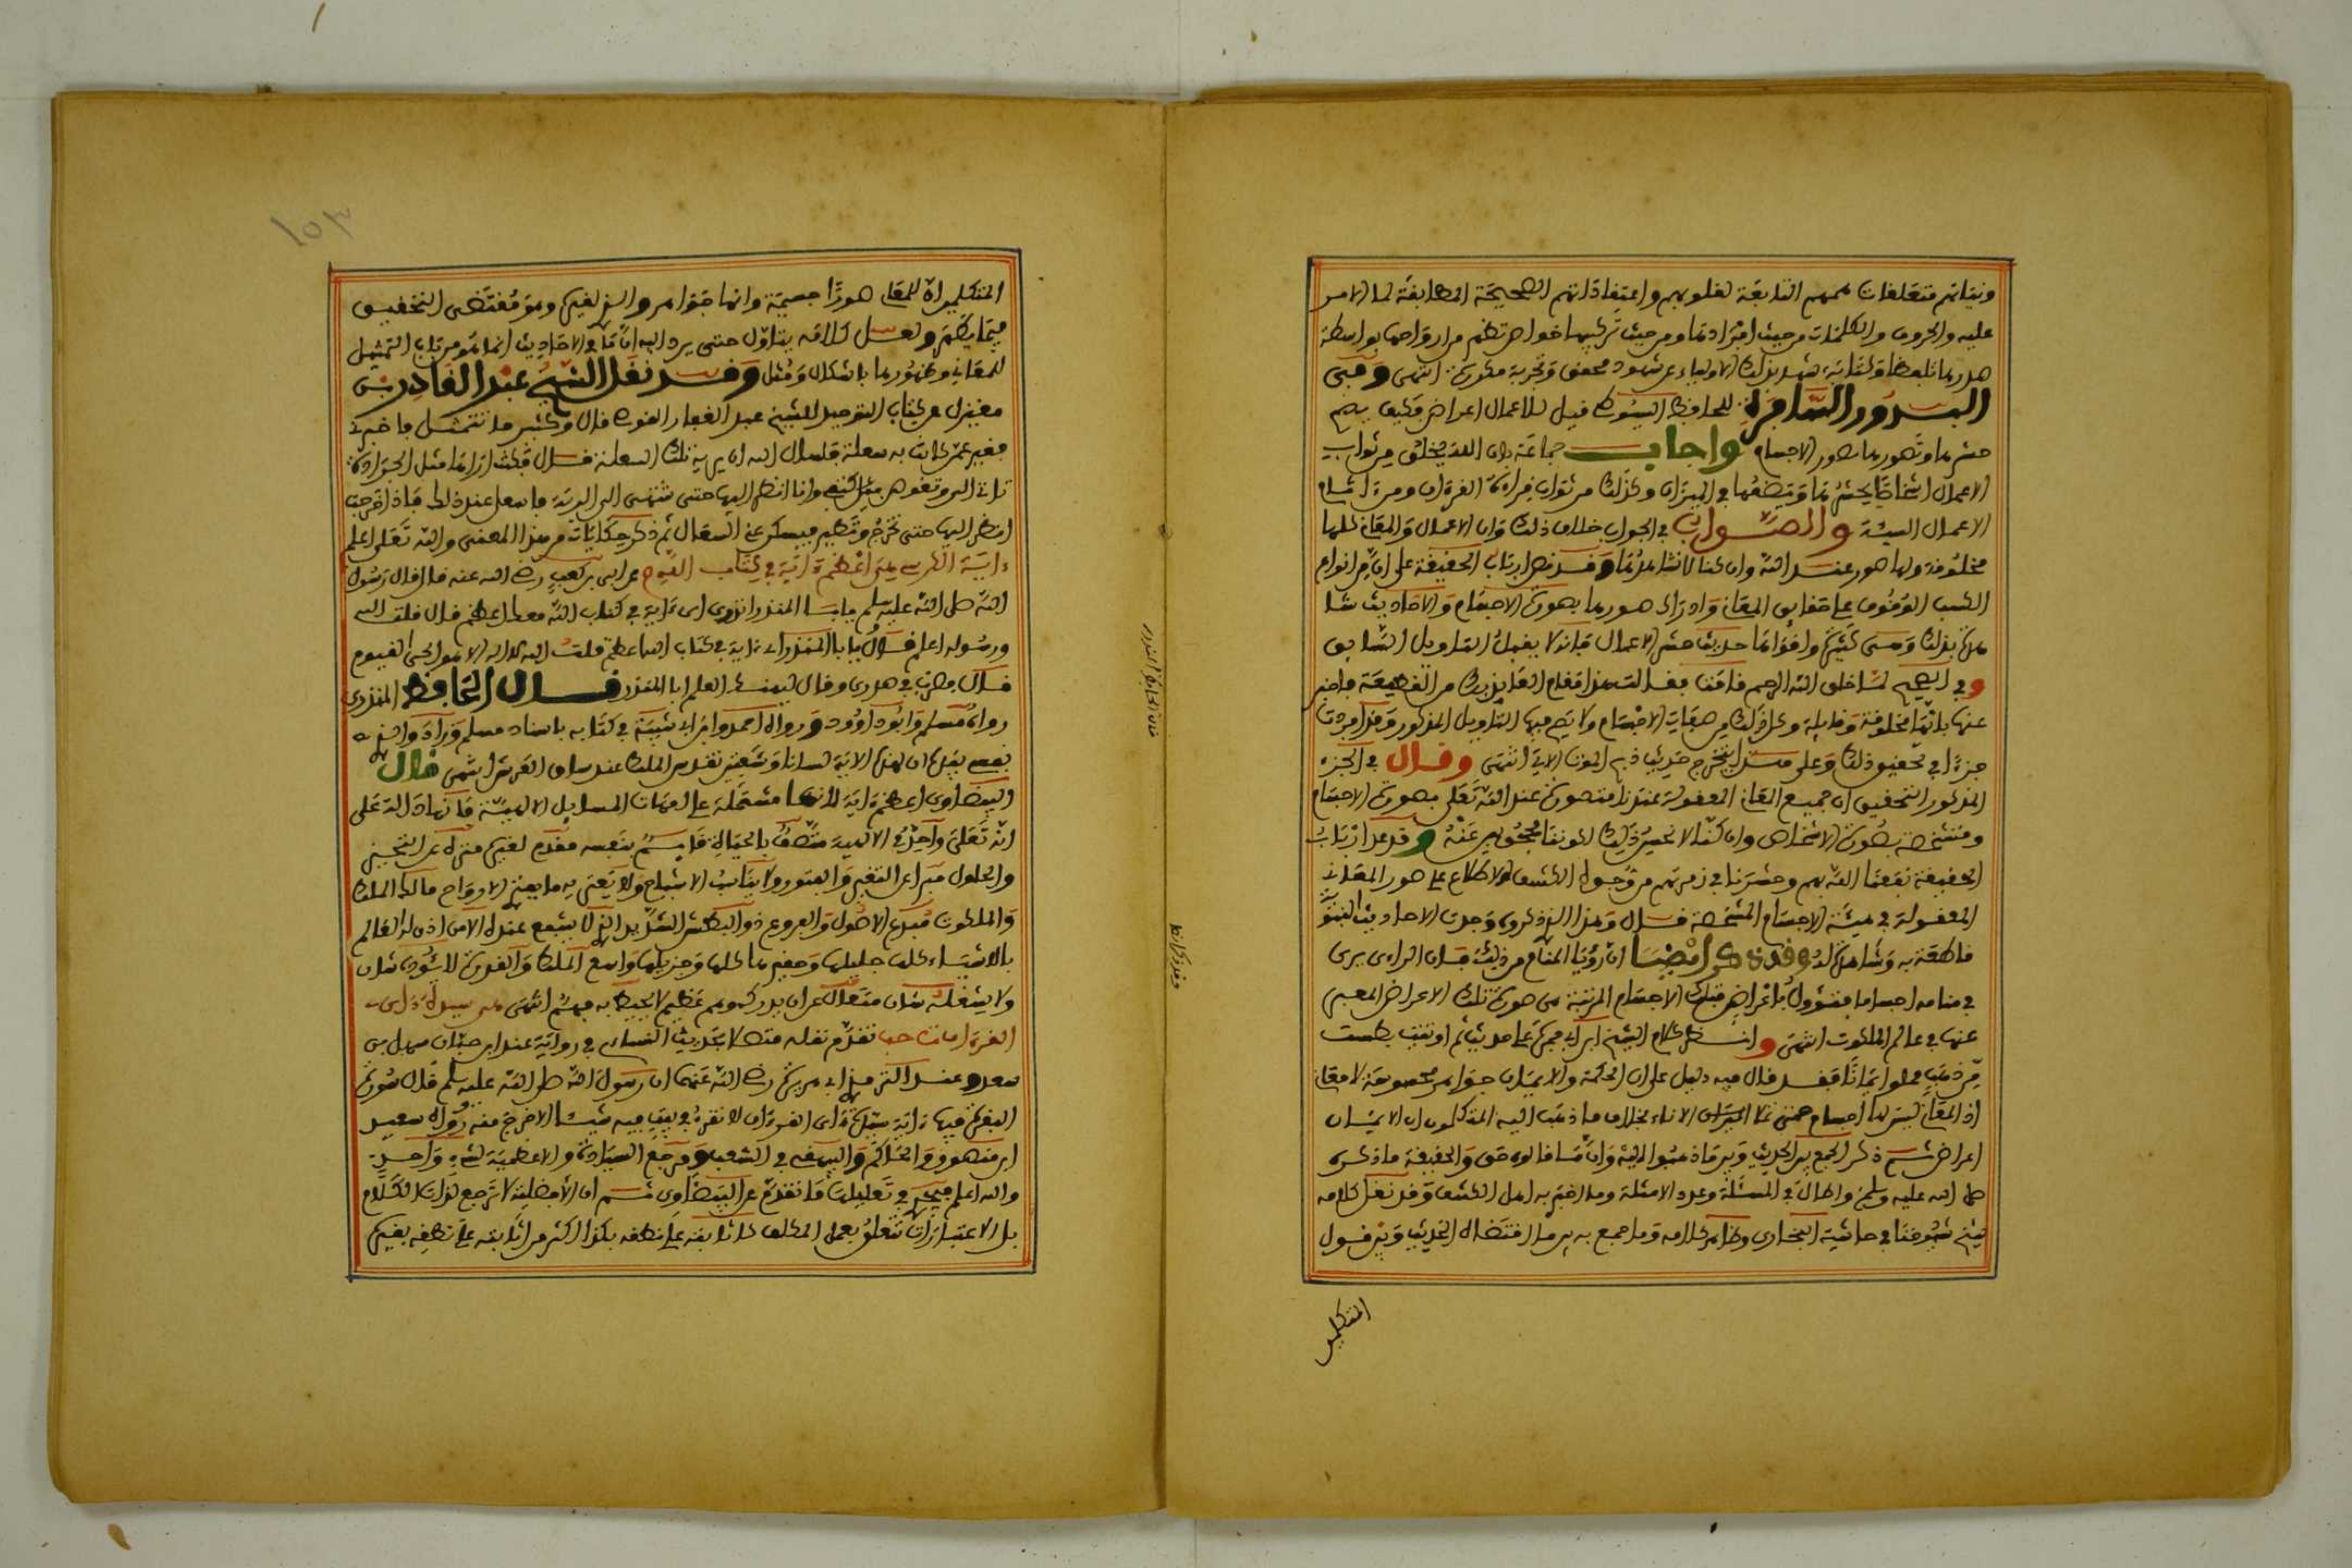 ونياتهم متعلقات هممهم التابعة لعلومهم واعتقاداتهم الصحيحة المطابقة لما الامر
عليه والحروف والكلمات من حيث افرادها ومن حيث تركيبها خواص تظهر من ارواحها بواسطة
صورها تلفظا وكتابة شهد بذلك الاولياء عن شهود محقق وتجربة مكررة انتهى وفي
البدور السافرة للحافظ السيوطي قيل الاعمال اعراض فكيف يصح
حشرها وتصورها بصور الاجسام واجاب جماعة بان الله يخلق من ثواب
الاعمال اشخاصا يحشرها ويضعها في الميزان وكذلك من ثواب قراءة القرءان ومن اثام
الاعمال السيئة والصواب في الجواب خلاف ذلك وان الاعمال والمعاني كلها
مخلوقة ولها صور عند الله وان كنا لا نشاهدها وقد نص ارباب الحقيقة على ان من انواع
الكشف الوقوف على حقايق المعاني وادراك صورها بصورة الاجسام والاحاديث شا
هدة بذلك وهي كثيرة واقواها حديث حشر الاعمال فانه لا يقبل التاويل السابق
وفي الصحيح لما خلق الله الرحم قامت فقالت هذا مقام العايذ بك من القطيعة فاخبر
عنها بانها مخلوقة وقايلة وكل ذلك من صفات الاجسام ولا يصح فيها التاويل المذكور وقد افردت
جزءا في تحقيق ذلك وعلى هذا يتخرج حديث ذبح الموت الاتي انتهى وقال في الجزء
المذكور التحقيق ان جميع المعاني المعقولة عندنا متصورة عند الله تعلى بصورة الاجسام
ومتشخصة بصورة الاشخاص وان كنا لا نحس ذلك لكوننا محجوبين عنه وقد عد ارباب
الحقيقة نفعنا الله بهم وحشرنا في زمرتهم من وجوه الكشف الاطلاع على صور المعاني
المعقولة في هيئة الاجسام المشخصة قال وهذا الذي ذكروه وجدت الاحاديث النبوية
ناطقة به وشاهدة له وقد ذكر ايضا ان رؤيا المنام من ذلك فان الراءى يرى
في منامه اجساما فتؤول باعراض فتلك الاجسام المرئية هي صورة تلك الاعراض المعبر
عنها في عالم الملكوت انتهى وانظر كلام الشيخ ابن ابي جمرة على حديث ثم اوتيت بطست
من ذهب مملو ايمانا فقد قال فيه دليل على ان الحكمة والايمان جواهر محسوسة لا معان
اذ المعاني ليس لها اجسام حتى تملا الاناء بخلاف ما ذهب اليه المتكلمون ان الايمان
اعراض ثم ذكر الجمع بين الحديث وبين ما ذهبوا اليه وان ما قالوه حق والحقيقة ما ذكره
صلى الله عليه وسلم واطال في المسئلة وعدد الامثلة وما اخبر به اهل الكشف وقد نقل كلامه
شيخ شيوخنا في حاشية البخاري وظاهر كلامه وما جمع به بين ما اقتضاه الحديث وبين قول
المتكلمين
١٥٣
المتكلمين ان للمعاني صورا جسمية وانها جواهر والذي لغيره وهو مقتضى التحقيق
فيما يظهر ولعل كلامه يتاول حتى يرد اليه ان ما في الاحاديث انما هو من باب التمثيل
للمعاني وظهورها باشكال ومثل وقد نقل الشيخ عبد القادر بن
مغيزل في كتاب التوحيد للشيخ عبد الغفار القوصي قال وكثير ما تتمثل
فقير عمن كانت به سعلة فسال الله ان يريه تلك السعلة قال فكنت اراها مثل الجرادة
تاتي الى وتغوص بين كتفي وانا انظر اليها حتى تنتهي الى الرئة فاسعل عند ذلك فاذا خرجت
انظر اليها حتى تخرج وتطير فيسكن عني السعال ثم ذكر حكايات من هذا المعنى والله تعلى اعلم
ءاية الكرسي هي اعظم ءاية في كتاب القيوم عن ابي بن كعب رضي الله عنه قال قال رسول
الله صلى الله عليه وسلم يابا المنذر اتدري اي ءاية في كتاب الله معك اعظم قال قلت الله
ورسوله اعلم قال يا ابا المنذر اي ءاية في كتاب الله اعظم قلت الله لا اله الا هو الحي القيوم
قال فضرب في صدري وقال ليهنك العلم ابا المنذر قال الحافظ المنذري
رواه مسلم وابو داوود ورواه احمد وابن ابي شيبة في كتابه باسناد مسلم وزاد والذي
نفسي بيده ان لهذه الاية لسانا وشفتين تقدس الملك عند ساق العرش انتهى قال
البيضاوي اعظم ءاية لانها مشتملة على امهات المسايل الالهية فانها دالة على
انه تعلى واحد في الالهية متصف بالحياة قايم بنفسه مقوم لغيره منزه عن التحيز
والحلول مبرا عن التغير والفتور ولا يناسب الاشباح ولا يعتريه ما يعتري الارواح مالك الملك
والملكوت مبدع الاصول والفروع ذو البطش الشديد الذي لا يشفع عنده الا من اذن له العالم
بالاشياء كلها جليلها وحقيرها كلها وجزيها واسع الملك والقدرة لا يئوده شاق
ولا يشغله شان متعال عن ان يدركه وهم عظيم لا يحيط به فهم انتهى هي سيدة ءاي
القرءان تقدم نقله متصلا بحديث النساء في رواية عند ابن حبان سهل بن
سعد وعند الترمذي ابي هريرة رضي الله عنهما ان رسول الله صلى الله عليه وسلم قال سورة
البقرة فيها ءاية سيدة ءاي القرءان لا تقرء في بيت فيه شيطان الا خرج منه رواه سعيد
ابن منصور والحاكم والبيهقي في الشعب ومرجع السيادة والاعظمية لشيء واحد
والله اعلم فيجري في تعليلها ما تقدم عن البيضاوي ثم ان الافضلية لا ترجع لذات الكلام
بل الاعتبارات تتعلق بعمل المكلف كاثابته على نطقه بكذا اكثر من اثابته على نطقه بغيره